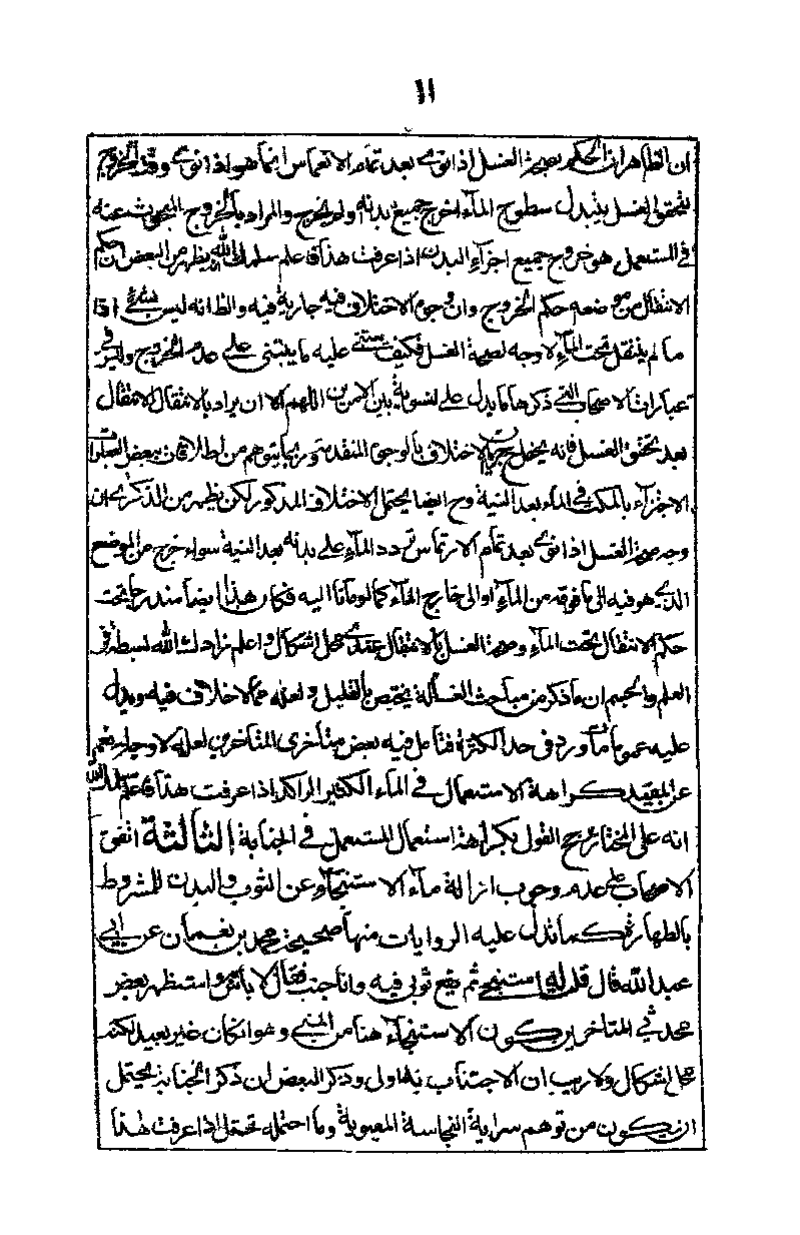 ١١
ان الظاهر ان الحكم بصحة الغسل اذا نوى بعد تمام الانغماس انما هو اذا نوى وقت الخروج
يتحقق الغسل بتبدل سطوح الماء اخرج جميع بدنه ولو لم يخرج والمراد بالخروج المبحوث عنه
في المستعمل هو خروج جميع اجزاء البدن اذا عرفت هذا فاعلم سلمك الله يظهر من البعض ان حكم
الانتقال من موضعه حكم الخروج وان وجوه الاختلاف فيه جارية فيه والظ انه ليس بشئ اذا
ما لم ينتقل تحت الماء لا وجه لصحة الغسل فكيف عليه ما يبتنى على عدم الخروج وليس في
عبارات الاصحاب التي ذكرها ما يدل على تسوية بين الامرين اللهم الا ان يراد بالانتقال الانتقال
بعد تحقق الغسل فانه يحتمل الاختلاف بالوجوه المتقدمة وربما يتوهم من اطلاق بعض العبارات
الاجزاء بالمكث في الماء بعد النية وح ايضا يحتمل الاختلاف المذكور لكن يظهر من الذكرى ان
وجه صحة الغسل اذا نوى بعد تمام الارتماس تردد الماء على بدنه بعد النية سواء خرج من الموضع
الذي هو فيه الى ما فوقه من الماء او الى خارج الماء كما اومأنا اليه فكان هذا ايضا مندرجا تحت
حكم الانتقال تحت الماء وصحة الغسل بالانتقال عندي محل اشكال واعلم زادك الله بسطة في
العلم والجسم ان ما ذكر من مباحث الغسالة يختص بالقليل ولعله مما لا خلاف فيه ويدل
عليه عموم ما ورد في حد الكثرة فتأمل فيه بعض متأخرى المتأخرين لعله لا وجه له نعم
عن المفيد كراهة الاستعمال في الماء الكثير الراكد اذا عرفت هذا فاعلم الله
انه على المختار يرجح القول بكراهة استعمال المستعمل في الجنابة الثالثة اتفق
الاصحاب على عدم وجوب ازالة ماء الاستنجاء عن الثوب والبدن للمشروط
بالطهارة كما تدل عليه الروايات منها صحيحة محمد بن نعمان عن ابي
عبد الله قال قلت له استنجى ثم يقع ثوبى فيه وانا جنب فقال لا باس واستظهر بعض
محدثي المتاخرين كون الاستنجاء هنا من المنى وهو ان كان غير بعيد لكنه
محل اشكال ولا ريب ان الاجتناب به اولى وذكر البعض ان ذكر الجنابة يحتمل
ان يكون من توهم سراية النجاسة المعنوية وما احتمله محتمل اذا عرفت هذا